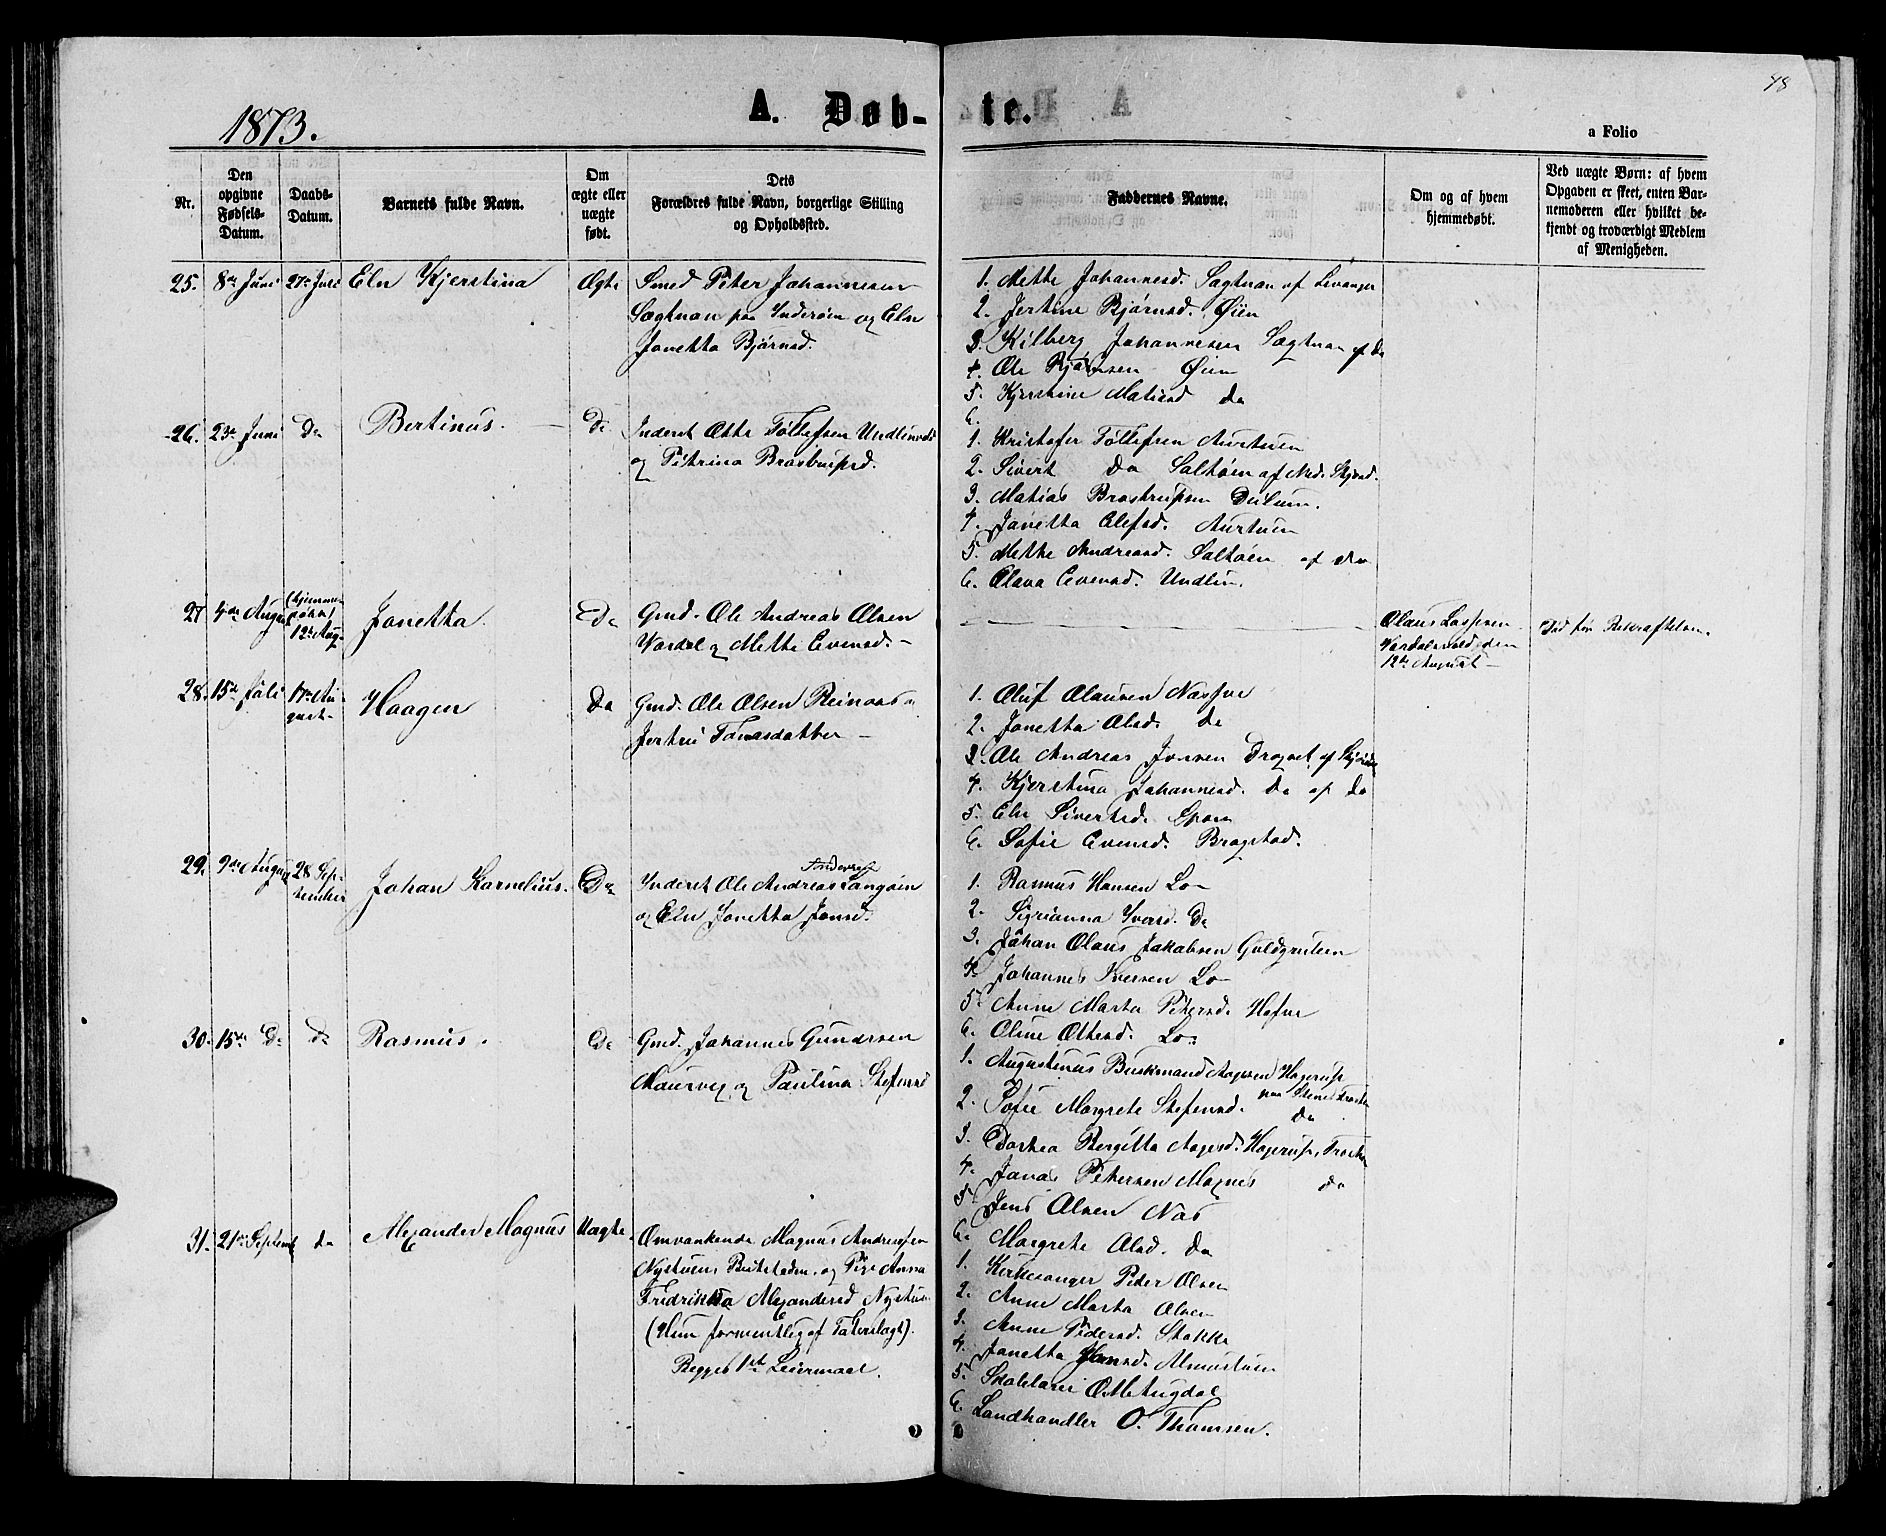 48
1873.
A. Døb-
te.
a Folio
Nr.
Den opgivne Fødsels-Datum.
Daabs-Datum.
Barnets fulde Navn.
Om ægte eller uægte født.
Dets Forældres fulde Navn, borgerlige Stilling og Opholdssted.
Faddernes Navne.
Om og af hvem hjemmedøbt.
Ved uægte Børn: af hvem Opgaven er skeet, enten Barnemoderen eller hvilket bekjendt og troværdigt Medlem af Menigheden.
25. 8de Juni 27de Juli Eln Kjerstina Ægte Smed Peter Johannesen
Sagtnan paa Inderøen og Eln
Janetta Bjørnsd.
1. Mette Johannesd. Sagtnan af Levanger
2. Jertine Bjørnsd. Øien
3. Kilberg Johannesen Sagtnan af Do
4. Ole Bjørnsen Øien
5. Kjerstine Matiasd Do
6.
26. 23de Juni Do Bertinus. Do Inderst Otte Tollefsen
og Petrina Brostrupsd.
1. Kristofer Tollefsen Aurtuen
2. Sivert Do Saltøen af Ned. Skjerd.
3. Matias Brostrupsen
4. Janetta Olefsd. Aurtuen
5. Mette Andreasd. Saltøen af Do
6. Olava Evensd. Undlien.
27 4de August (hjemmedøbt) 12te Aug. Janetta. Do Gmd. Ole Andreas Olsen
Vardal og Mette Evensd. -
Olaus Lassesen
Værdalsvald den
12te August
Død før Bekræftelsen.
28. 15de Juli 17de August. Haagen Do Gmd. Ole Olsen Reinaas og
Jertru Tomasdatter -
1. Oluf Olausen Næsvæ
2. Janetta Olsd. Do
3. Ole Andreas Jonsen
4. Kjerstina Johannesd. Do af Do
5. Eln Sivertsd.
6. Sofie Evensd. Bragstad.
29. 9de August 28 September Johan Kornelius. Do Inderst Ole Andreas Langøin
og Eln Janetta Jonsd.
1. Rasmus Hansen Lo
2. Sigrianna Iversd. Do
3. Johan Olaus Jakobsen Guldgruben
4. Johannes Iversen Lo
5. Anne Marta Petersd. Hofne
6. Oline Ottesd. Lo.
30. 15de Do Do Rasmus. Do Gmd. Johannes Gundersen
Maurvig og Paulina Stefensd
1. Augustinus Buchmand Aagesen Hagerup
paa
2. Sofie Margrete Stefensd. Do
3. Dorthea Bergitta Aagesd. Hagerup,
4. Jonas Petersen Magnes Do
5. Jens Olsen Næs
6. Margrete Olsd. Do
31. 21de Septemb. do Alexander Magnus Uægte. Omvankende Magnus Andreassen
Nystuen, Beitstaden, og Pige Anna
Fredrikka Alexandersd Nystuen
(Hun formentlig af Taterslægt).
Begges 1ste Leiermaal.
1. Kirkesanger Peter Olsen
2. Anne Marta Olsen
3. Anne Pedersd. Stokke
4. Janetta Jonsd.
5. Skolelærer O. Mehugdal
6. Landhandler O. Thomsen.